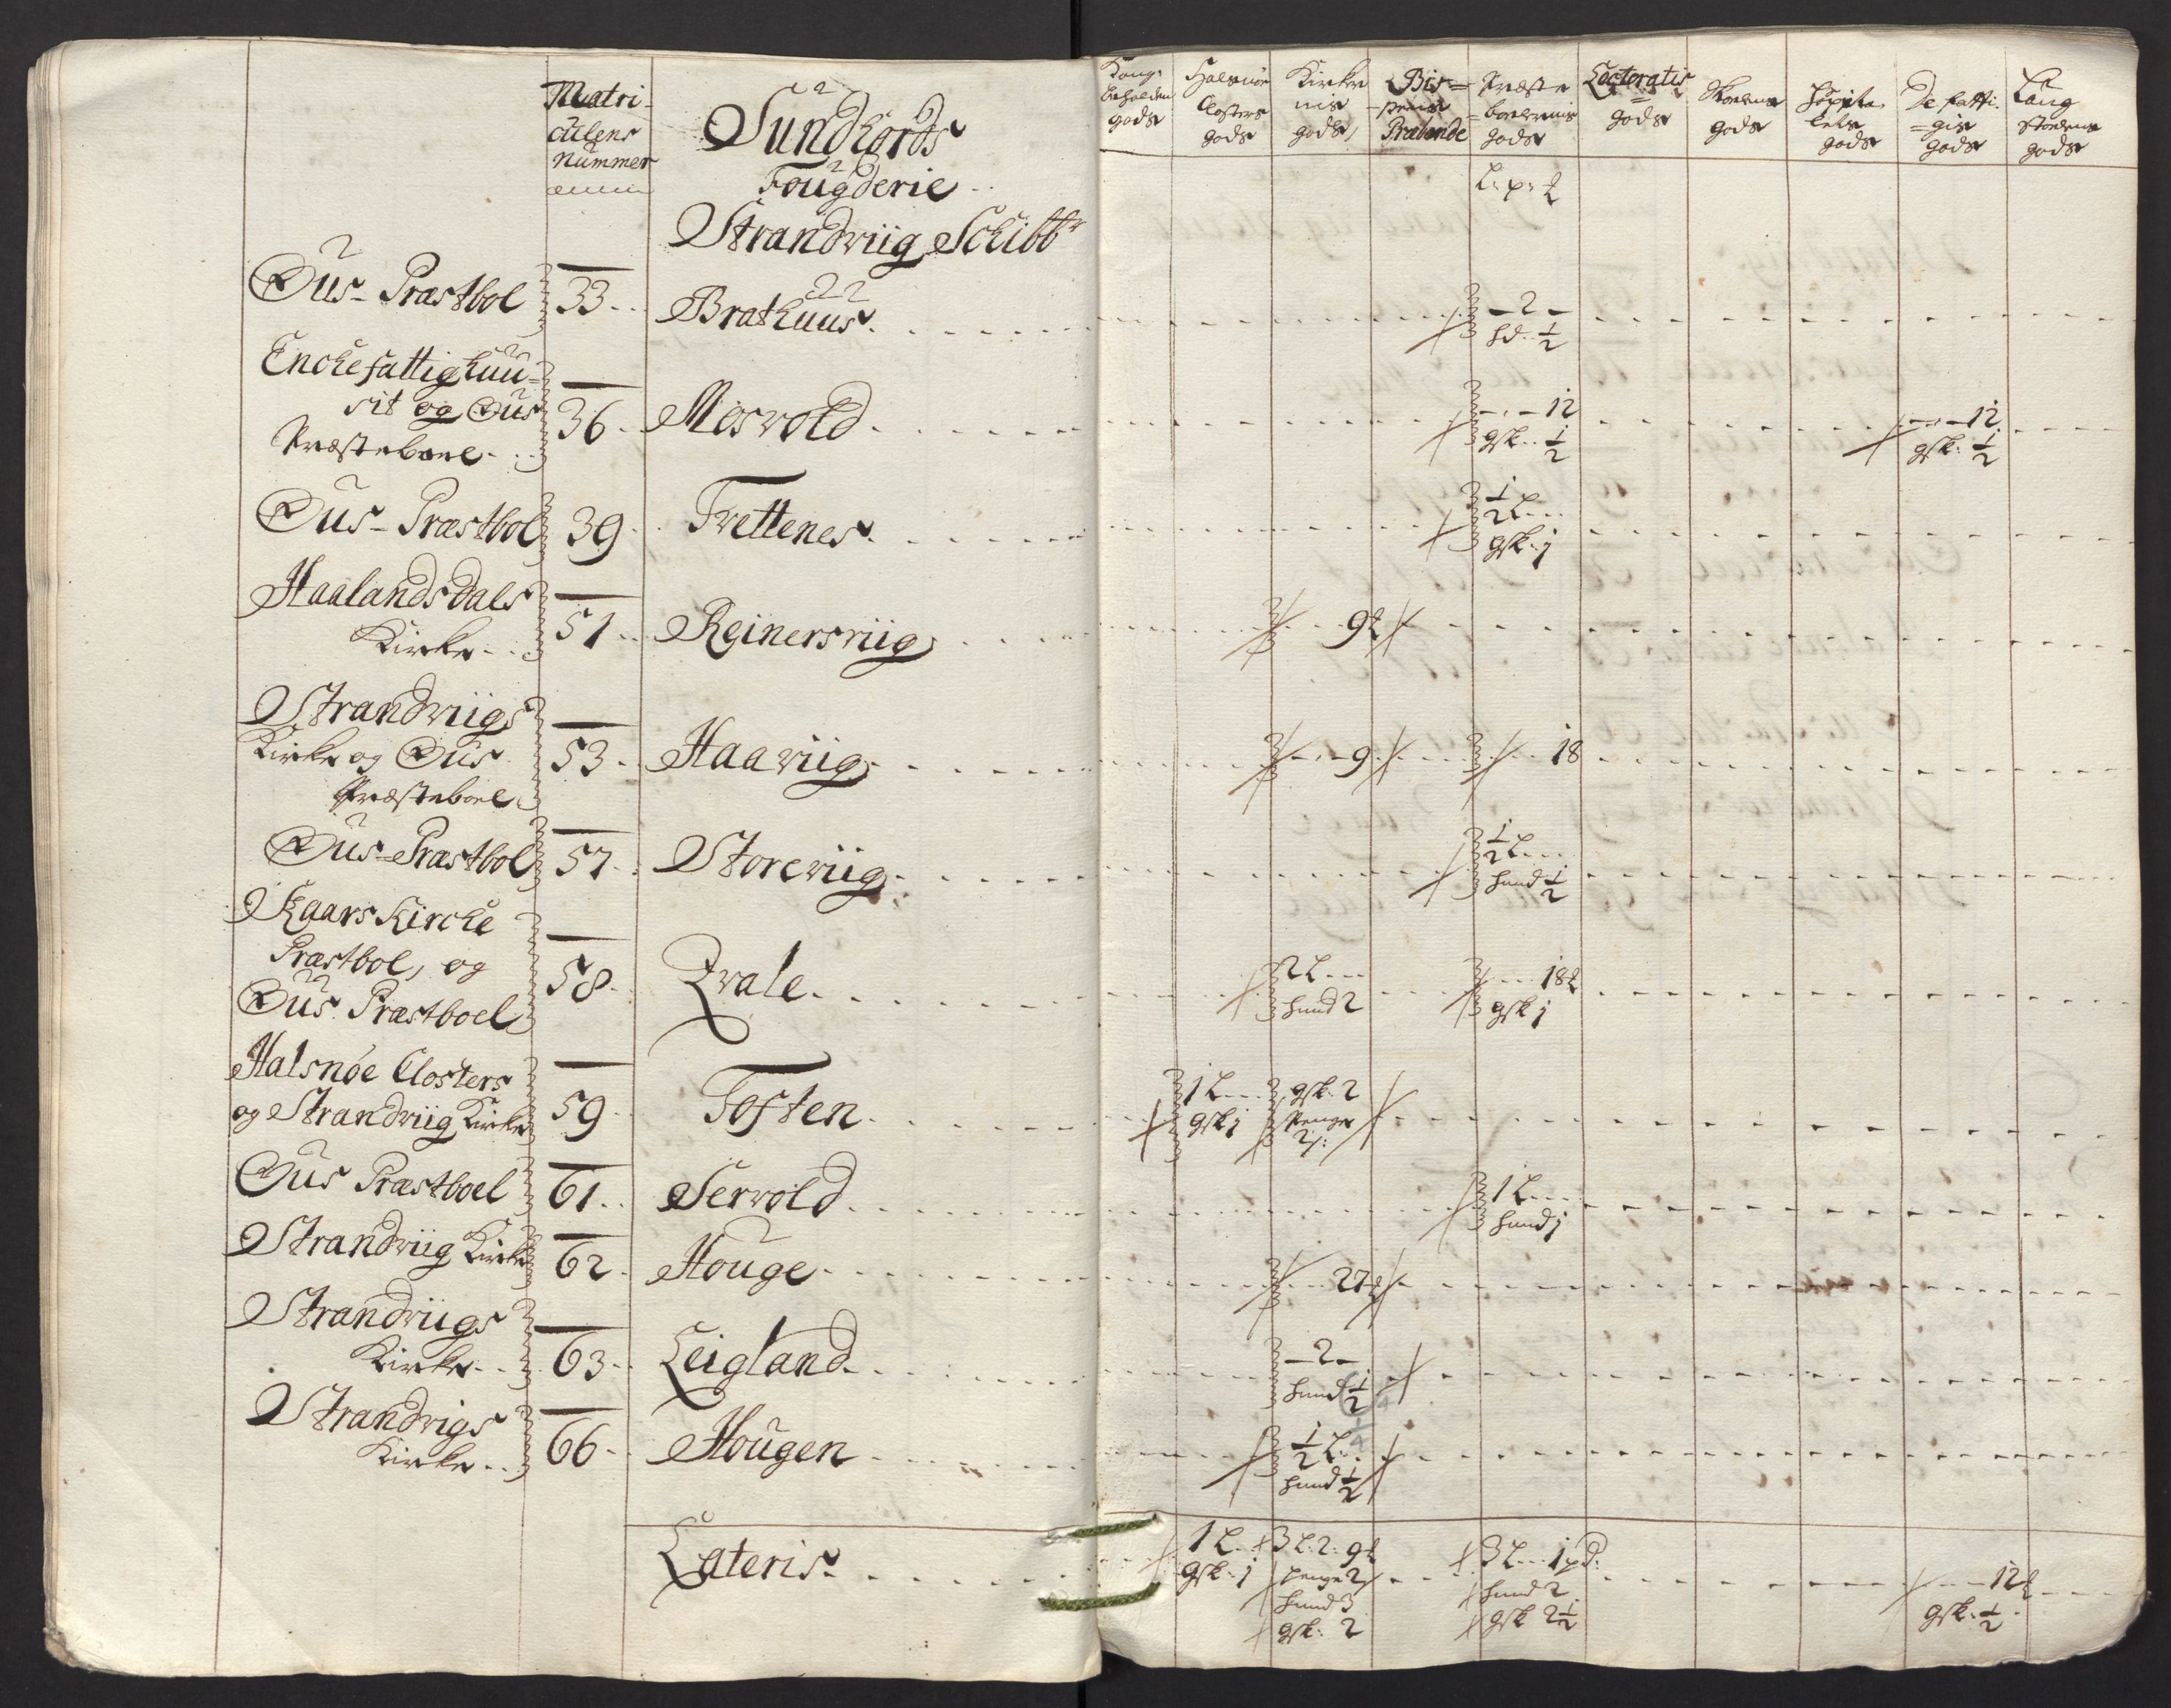 Matri-
culens
Nummer
Sundhords
Fougderie
Strandviig Schibbr
Kong:
beholden
gods
Halsnöe
Closters
gods
Kircker
nis
gods
Bis=
pens
Præbende
Præste
boelernis
gods
Lectoratis
gods
Skolens
gods
Hospita
lets
gods
De fatti-
gis
gods
Laug
stolens
gods
L: p: ℔
Ous Præstbol 33 Brathuus - 2 -
hd. ½
Enckefattighuu-
sit og Ous
Præsteboel 36 Mosvold - - 12 - - 12
gsk. ½ gsk: ½
Ous-Præstbol 39 Trettenes ½ L
gsk. j
Haalandsdals
Kircke 51 Reinersviig 9 ℔
Strandviigs
Kircke og Ous
Præsteboel 53 Haaviig 9 18
Ous-Præstbol 57 Storeviig ½ L
hund ½
Skaars Kircke
Præstbol, og
Ous Præstboel 58 Qvale 2 L 18 ℔
hund 2 gsk j
Halsnöe Closters
og Strandviig Kircke 59 Toften 1 L gsk. 2
gsk j Penge
2 ß:
Ous Præstboel 61 Servold 1 L
hund j
Strandviig Kircke 62 Houge 27 ℔
Strandviigs
Kircke 63 Leigland - 2 -
hund ½
Strandvigs
Kircke 66 Hougen ½ L
hund ½
Lateris 1 L 3 L: 2: 9 ℔ 3 L 1 pd: 12 ℔
gsk. j penge 2 hund 2 gsk. ½
hund 3 gsk 2½
gsk: 2